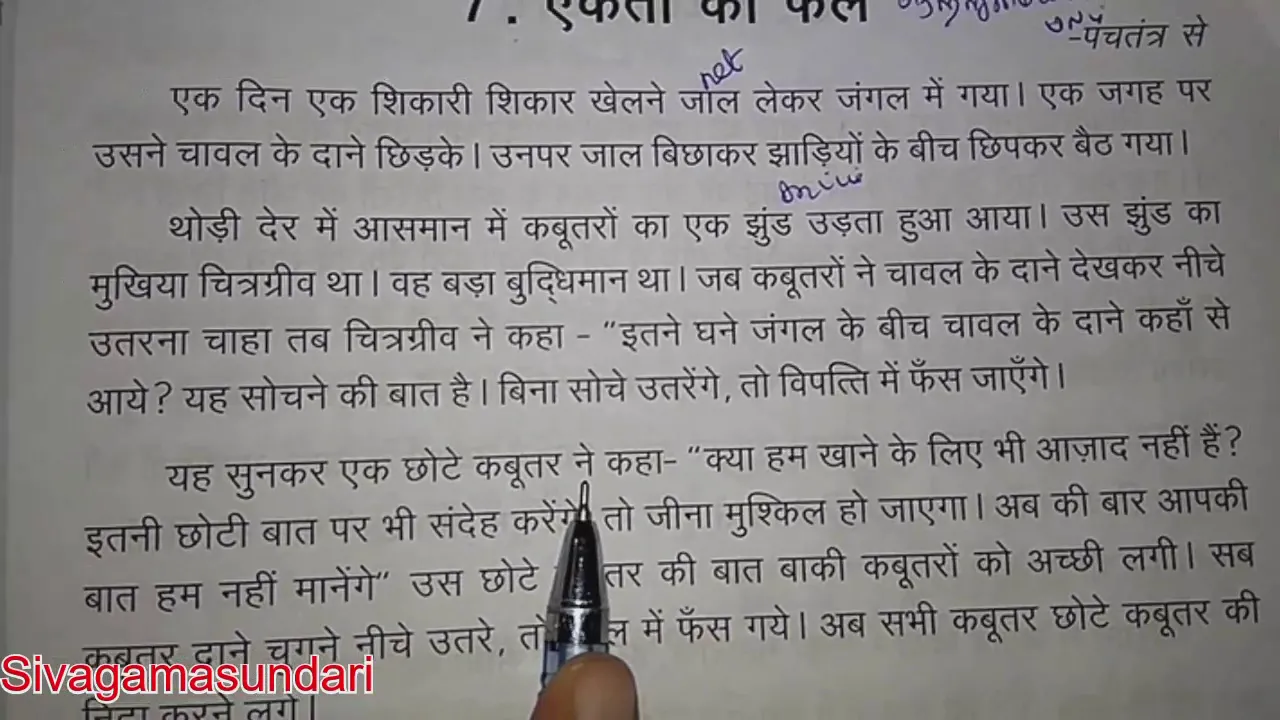 7. एकता का फल
-पंचतंत्र से
net
एक दिन एक शिकारी शिकार खेलने जाल लेकर जंगल में गया। एक जगह पर
उसने चावल के दाने छिड़के। उनपर जाल बिछाकर झाड़ियों के बीच छिपकर बैठ गया।
थोड़ी देर में आसमान में कबूतरों का एक झुंड उड़ता हुआ आया। उस झुंड का
मुखिया चित्रग्रीव था। वह बड़ा बुद्धिमान था। जब कबूतरों ने चावल के दाने देखकर नीचे
उतरना चाहा तब चित्रग्रीव ने कहा - "इतने घने जंगल के बीच चावल के दाने कहाँ से
आये? यह सोचने की बात है। बिना सोचे उतरेंगे, तो विपत्ति में फँस जाएँगे।
यह सुनकर एक छोटे कबूतर ने कहा- "क्या हम खाने के लिए भी आज़ाद नहीं हैं?
इतनी छोटी बात पर भी संदेह करेंगे तो जीना मुश्किल हो जाएगा। अब की बार आपकी
बात हम नहीं मानेंगे" उस छोटे तर की बात बाकी कबूतरों को अच्छी लगी। सब
कबूतर दाने चुगने नीचे उतरे, तो ल में फँस गये। अब सभी कबूतर छोटे कबूतर की
निंदा करने लगे।
Sivagamasundari